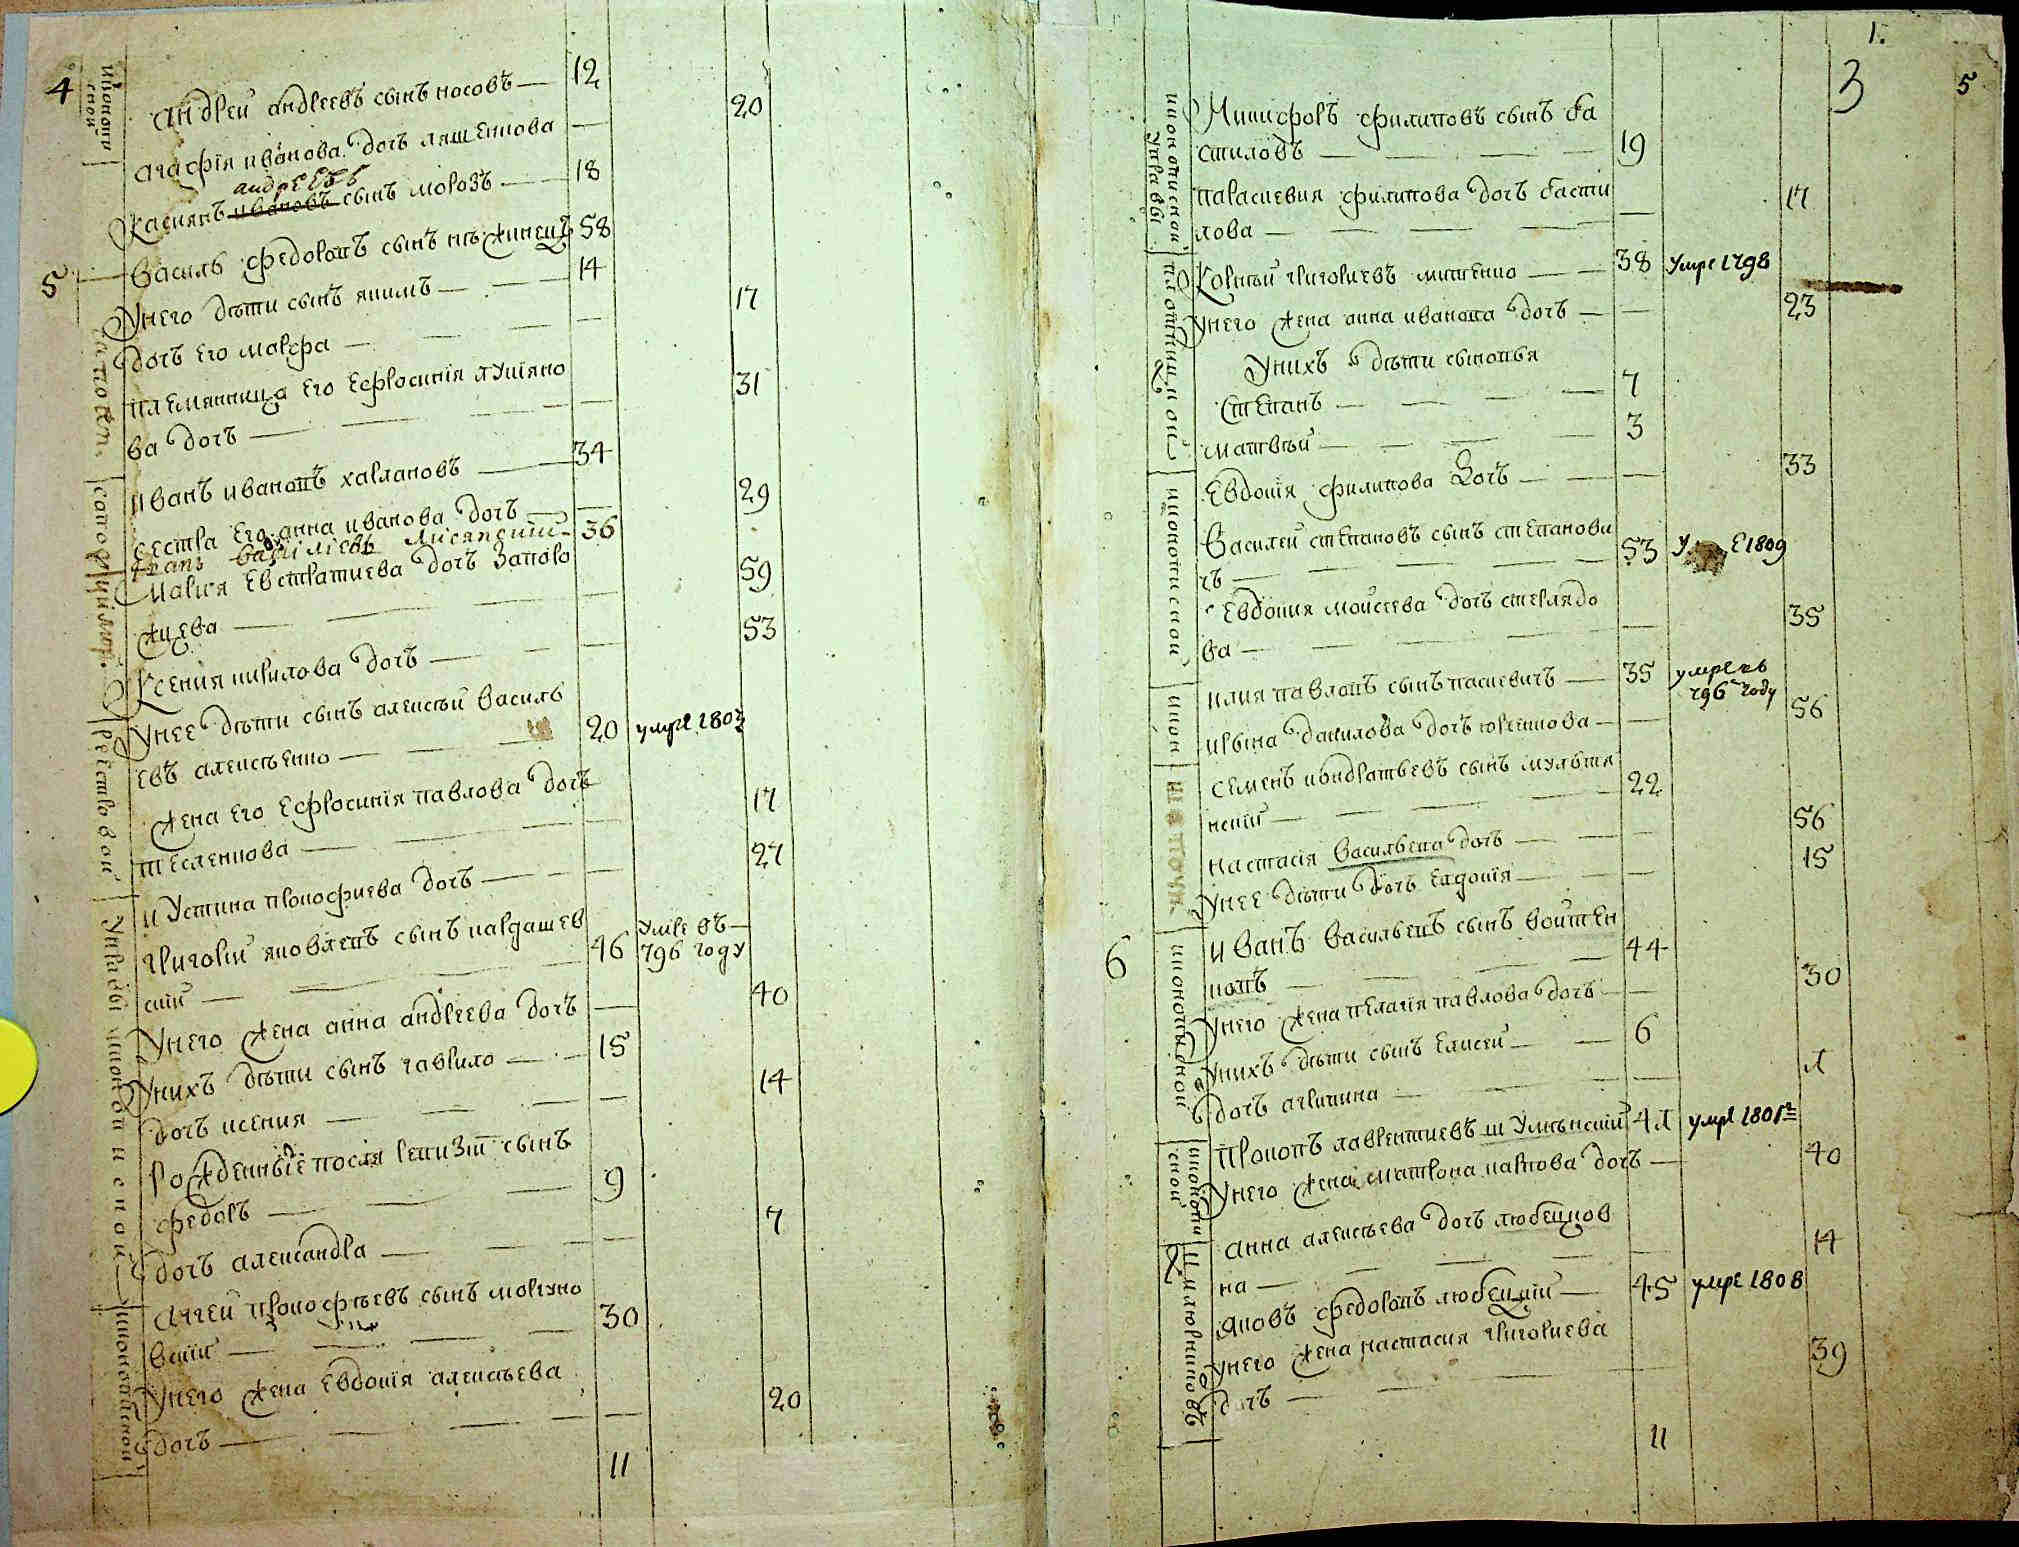 4
Андрей андреевъ сынъ носовъ — 12
20
агафiя иванова дочь ляшенкова —
андреевъ
Касиянъ ивановъ сынъ морозъ — 18
5
василь федоровъ сынъ нѣжинецъ 58
Унего дѣти сынъ якимъ — 14
17
дочь его мавра —
племянница его ефросинiя лукiяно
31
ва дочь —
иванъ ивановъ харлановъ — 34
29
сестра его анна иванова дочь —
Иванъ василiевъ Лисянский 36
Мария евстратиева дочь запоро
59
жцева —
53
Ксения кирилова дочь —
Унее дѣти сынъ алексѣй василь
евъ алексѣенко — 20 умре 1803
жена его ефросинiя павлова дочь
17
тесленкова —
27
и Устина прокофиева дочь —
григорий яковлевъ сынъ кардашев
46 Умре въ
796 году
ский —
40
Унего жена анна андреева дочь —
Унихъ дѣти сынъ гаврило — 15
14
дочь ксения —
Рожденные после ревизiи сынъ
федоръ — 9
7
дочь александра —
Аггей прокофьевъ сынъ моргуно
вский — 30
Унего жена евдокiя алексѣева
20
дочь —
11
1.
3
5
Никифоръ филиповъ сынъ ба
стиловъ — 19
параскевия филипова дочь басти
17
лова —
Корнѣй григориевъ митенко — 38 умре 1798
23
Унего жена анна иванова дочь —
Унихъ дѣти сыновья
Степанъ — 7
матвѣй — 3
33
Евдокiя филипова дочь —
Василей степановъ сынъ степанови
чъ — 53 1809
Евдокия моисеева дочь стерлядо
35
ва —
илия павловъ сынъ паскевичъ — 35 умре въ
796 году
56
ирына данилова дочь юренкова —
семенъ кондратьевъ сынъ мультя
22
нский —
56
настасiя васильева дочь —
15
Унее дѣти дочь евдокiя —
6
иванъ васильевъ сынъ войтен
44
ковъ —
30
Унего жена пелагiя павлова дочь —
Унихъ дѣти сынъ елисей — 6
дочь агрипина —
Прокопъ лаврентиевъ шумѣнский умре 1801
40
Унего жена матрона карпова дочь —
анна алексѣева дочь любецков
14
на —
яковъ федоровъ любецкий — 45 умре 1808
Унего жена настасия григориева
39
дочь —
11